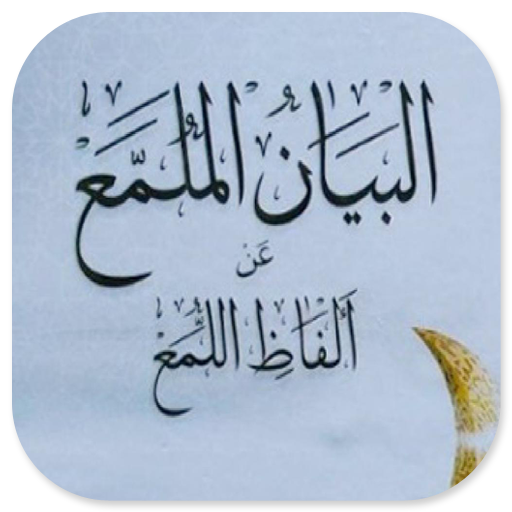 البَيَانُ المُلَمَّعْ
عَنْ
أَلْفَاظِ اللُّمَعْ